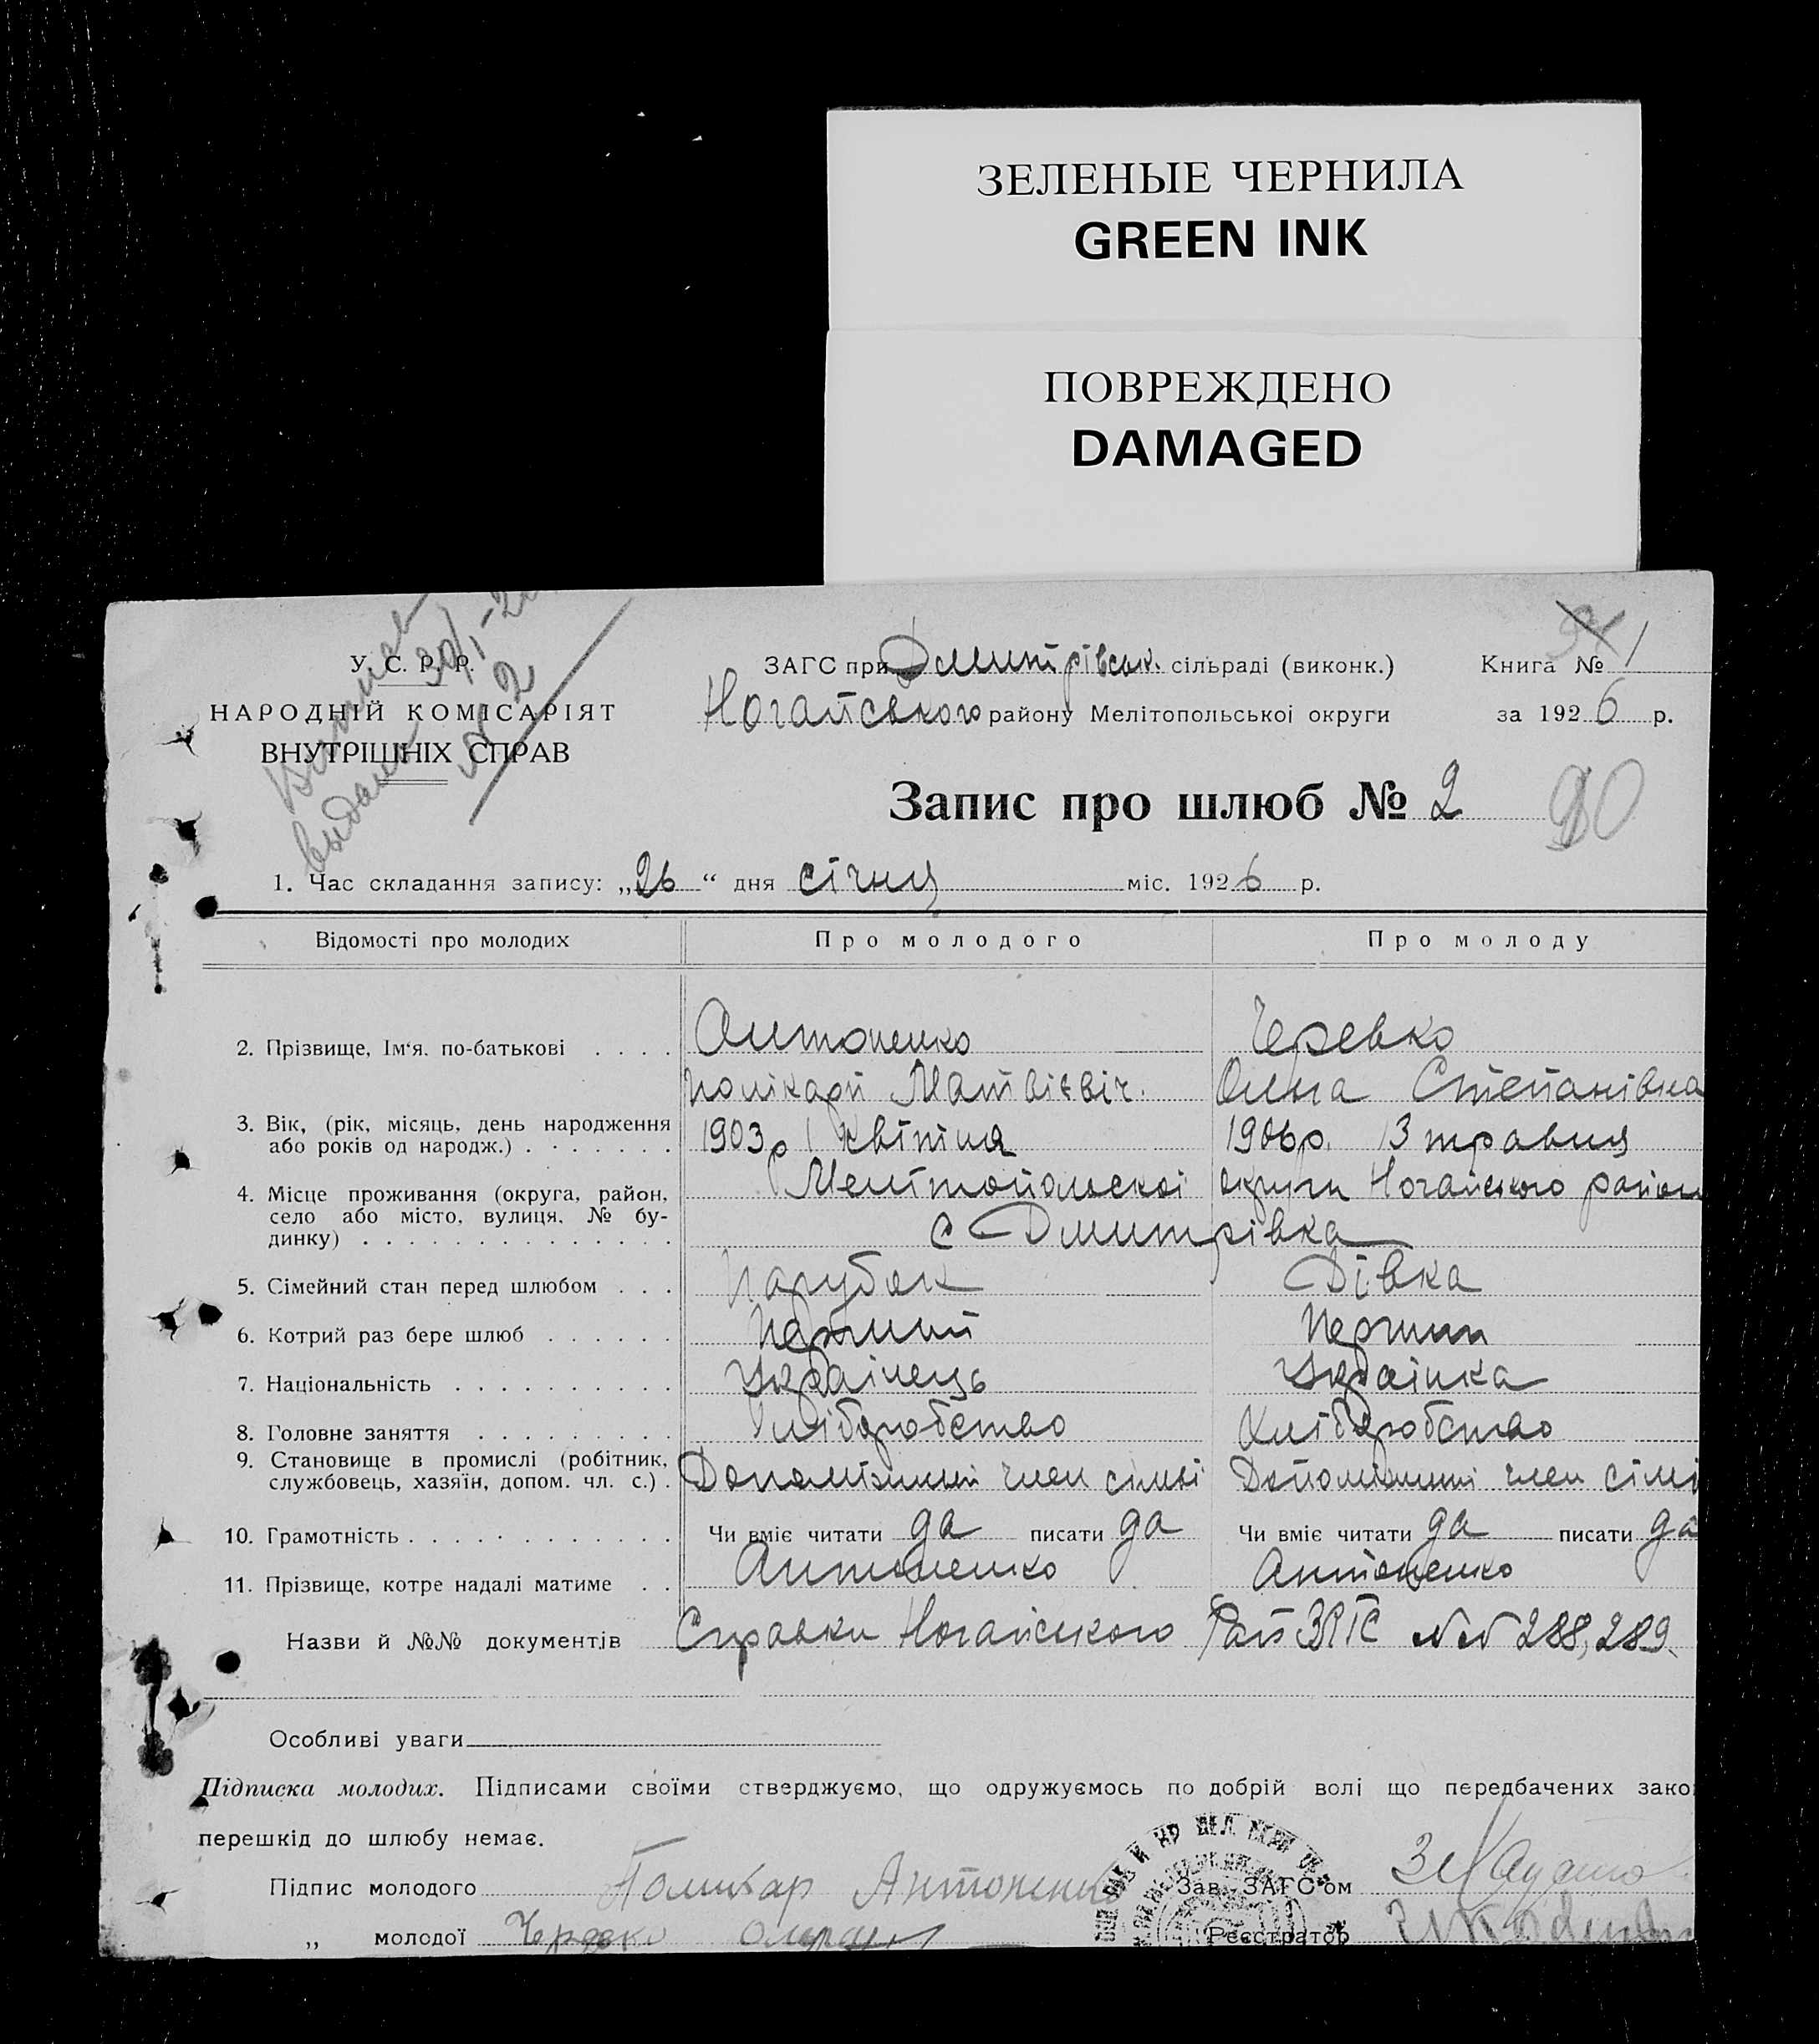 ЗЕЛЕНЫЕ ЧЕРНИЛА
GREEN INK
ПОВРЕЖДЕНО
DAMAGED
У. С. Р. Р.
НАРОДНІЙ КОМІСАРІЯТ
ВНУТРІШНІХ СПРАВ
№ 2
ЗАГС при Дмитрівськ. сільраді (виконк.) Книга № 1
Ногайського району Мелітопольської округи за 1926 р.
Запис про шлюб № 2
1. Час складання запису: „26“ дня січня міс. 1926 р.
Відомості про молодих Про молодого Про молоду
2. Прізвище, Ім'я. по-батькові . . . . Антоненко Черевко
Полікарп Матвієвіч. Олена Степанівна
3. Вік, (рік, місяць, день народження
або років од народж.) . . . . . . . 1903 р 1 квітня 1906 р. 13 травня
4. Місце проживання (округа, район, Мелітопольскоі округи Ногайського району
село або місто, вулиця, № бу-
динку) . . . . . . . . . . . . . . с Дмитрівка
5. Сімейний стан перед шлюбом . . . Парубок Дівка
6. Котрий раз бере шлюб . . . . . . Перший Перший
7. Національність . . . . . . . . . . Українець Українка
8. Головне заняття . . . . . . . . . Хліборобство Хліборобство
9. Становище в промислі (робітник,
службовець, хазяїн, допом. чл. с.) . Допоміжний член сімьі Допоміжний член сімі
10. Грамотність . . . . . . . . . . . . Чи вміє читати да писати да Чи вміє читати да писати да
11. Прізвище, котре надалі матиме . . Антоненко Антоненко
Назви й №№ документів Справки Ногайського Рай ЗАГС №№ 288, 289.
Особливі уваги
Підписка молодих. Підписами своїми стверджуємо, що одружуємось по добрій волі що передбачених зако
перешкід до шлюбу немає.
Підпис молодого Поликар Антоненко Зав. ЗАГС'ом
„ молодої Черевко Реєстратор